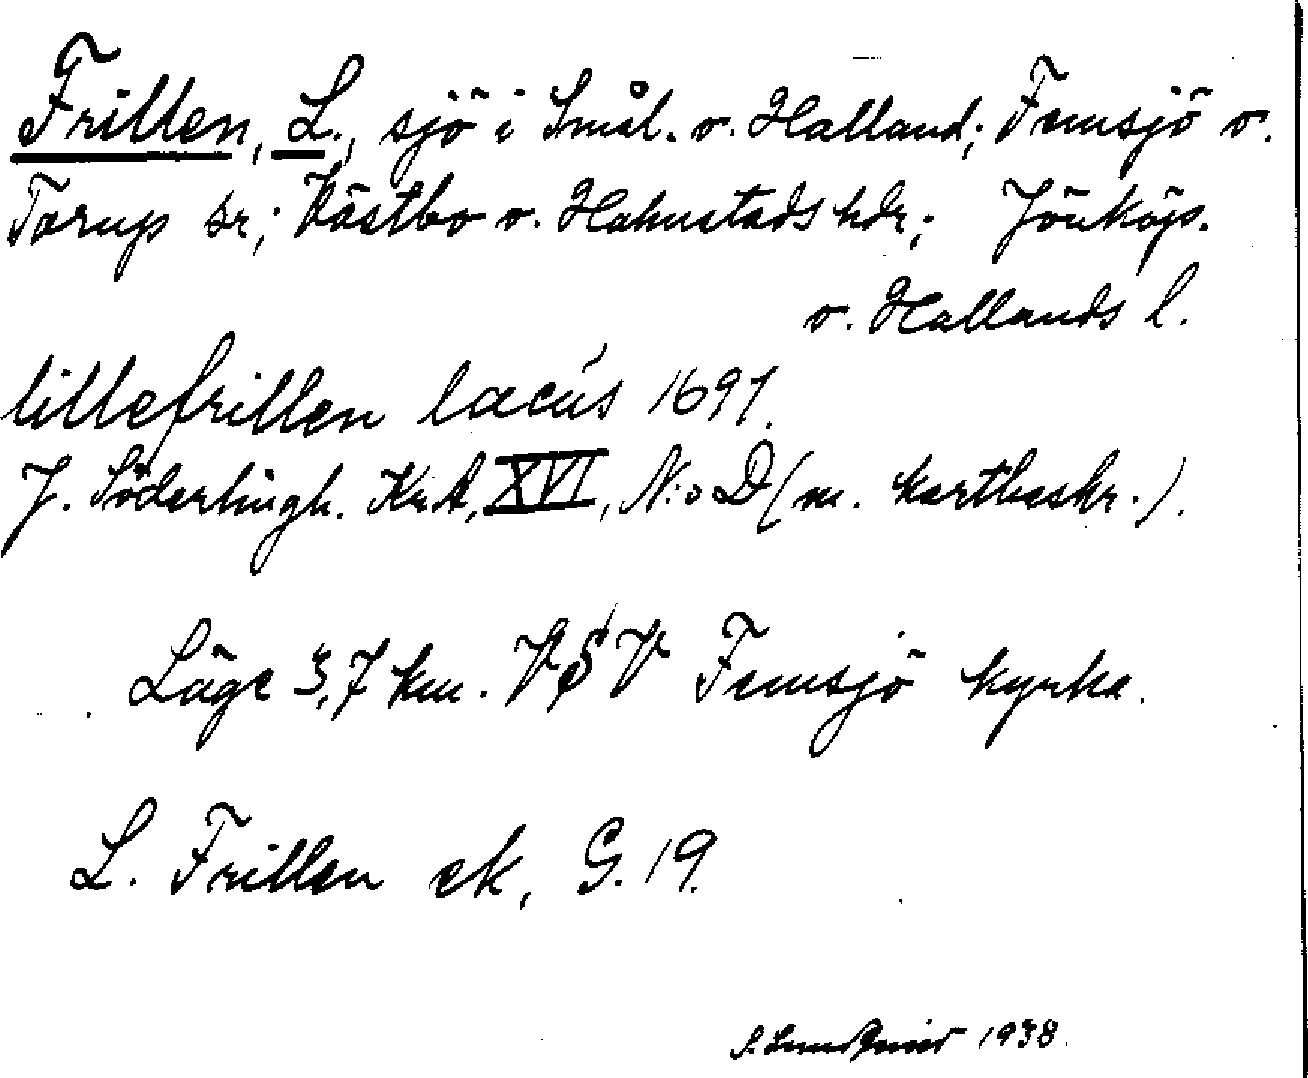 Frillen, L., sjö i Smål. o. Halland; Femsjö o.
Torup sr; Västbo o. Halmstads hdr; Jönköps.
o. Hallands l.
lillefrillen lacus 1691.
J. Söderlingh. KrA, XVI, N:o D (m. kartbeskr.).
Läge 3,7 km. VSV Femsjö kyrka.
L. Frillen ek, G. 19.
1938